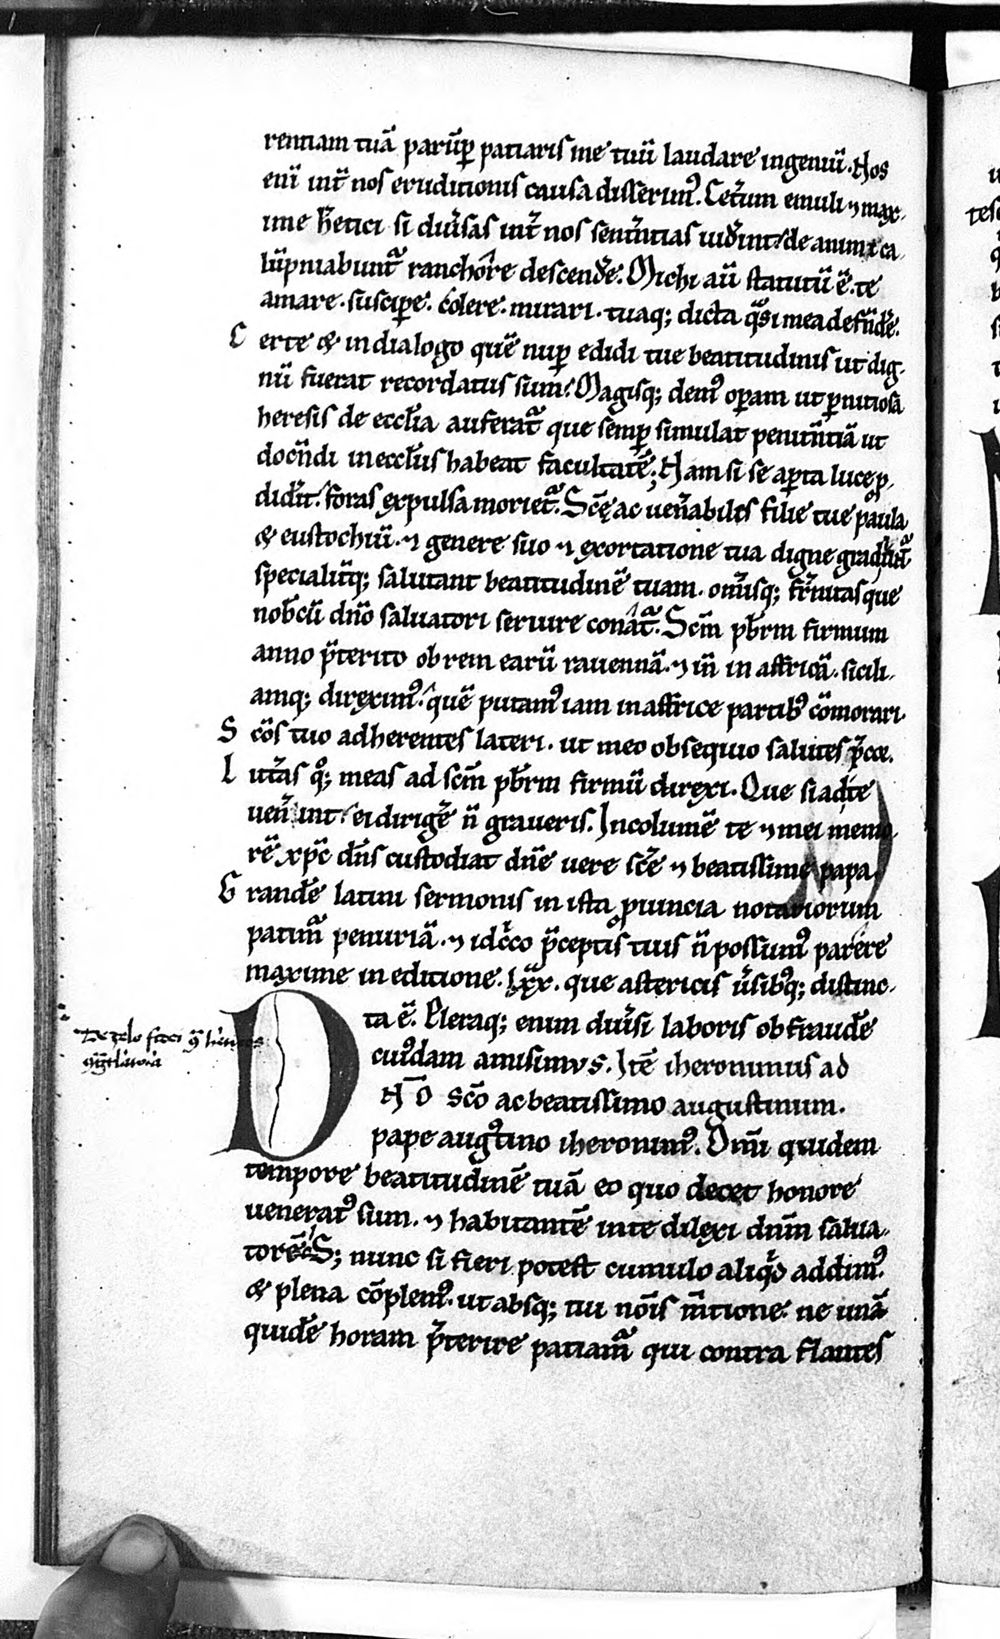 rentiam tuā parūp̄ patiaris me tuū laudare ingeniū. Nos
enī int̄ nos eruditionis causa disserim⁹. Cet̄um emuli ⁊ max-
ime h̄etici si diu̾sas int̄ nos sent̄ntias uid̾int / de animi ca-
lūpniabunt᷑ ranchôre descend̾e. Michi aū statutū ē. te
amare. suscip̱e. colere. mirari. tuaq; dicta q̾si mea defn̄d̾e.
C erte & in dialogo quē nup̱ edidi tue beatitudinis ut dig-
nū fuerat recordatus sum. Magisq; dem⁹ op̱am ut p̱nitiosa
heresis de eccl̄ia auferat᷑ que semp̱ simulat penitn̄tiā ut
docn̄di in eccl̄iis habeat facultatē; Nam si se ap̱ta luce p̱-
did̾it. foras expulsa moriet᷑. Sc̄ę ac uen̾abiles filie tue paula
& eustochiū. ⁊ genere suo ⁊ exortatione tua digne gradiūt᷑
specialit̾q; salutant beatitudinē tuam. omīsq; fr̄nitas que
nob̄cū dn̄o saluatori seruire conat᷑. Scm̄ pb̄rm firmum
anno p̄terito ob rem earū rauennā. ⁊ in̄ in affricā. sicili-
amq; direxim⁹. quē putam⁹ iam in affrice partib⁹ cōmorari.
S cōs tuo adherentes lateri. ut meo obsequio salutes p̄cor.
L itt̾as qͦ; meas ad scm̄ pb̄rm firmū direxi. Que si ad te
uen̾int / ei dirig̾e n̄ graueris. Incolumē te ⁊ mei memo-
rē xp̄c dn̄s custodiat dn̄e uere sc̄e ⁊ beatissime papa.
G rand̾e latini sermonis in ista p̱uincia notariorum
patim᷑ penuriā. ⁊ idc̾co p̄ceptis tuis n̄ possum⁹ parere
maxime in editione. lxx. que astericis u̾sib⁹q; distinc-
ta ē. Pleraq; enim diu̾si laboris ob fraud̾e
cui⁹dam amisimus. Itē iheronimus ad
sc̄o ac beatissimo augustinum.
pape aug̾tino iheronim⁹. Omī quidem
tempore beatitudinē tuā eo quo decet honore
uenerat⁹ sum. ⁊ habitantē in te dilexi dn̄m salua-
torē S; nunc si fieri potest cumulo aliq̾d addim⁹.
& plena cōplem⁹. ut absq; tui nōis m̄tione. ne unā
quid̾e horam p̄terire patiam᷑ qui contra flantes
De zelo fidei